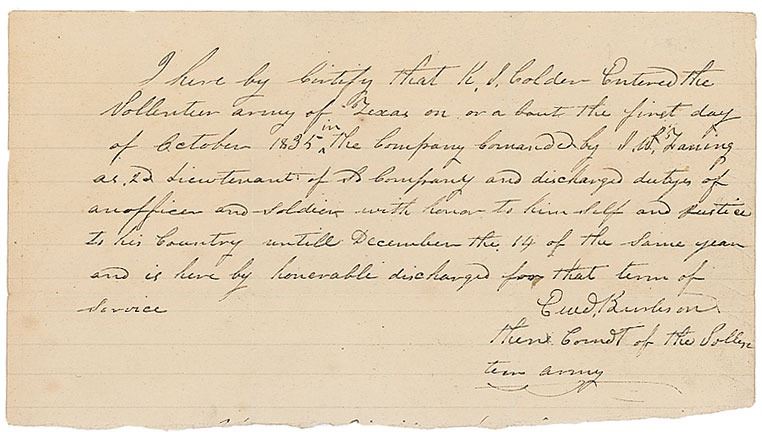 I here by Certify that K. J. Golden Entered the
Vollentier army of Texas on or a bout the first day
of October 1835 in the Company Comanded by J. W.
as 2d Lieutenant of sd Company and discharged dutys of
an officer and soldier with honor to him self and justice
to his Country untill December the 14 of the same year
and is here by honerable discharged for that term of
service
Ewd. Burleson
then Comdt of the Vollen
teer army